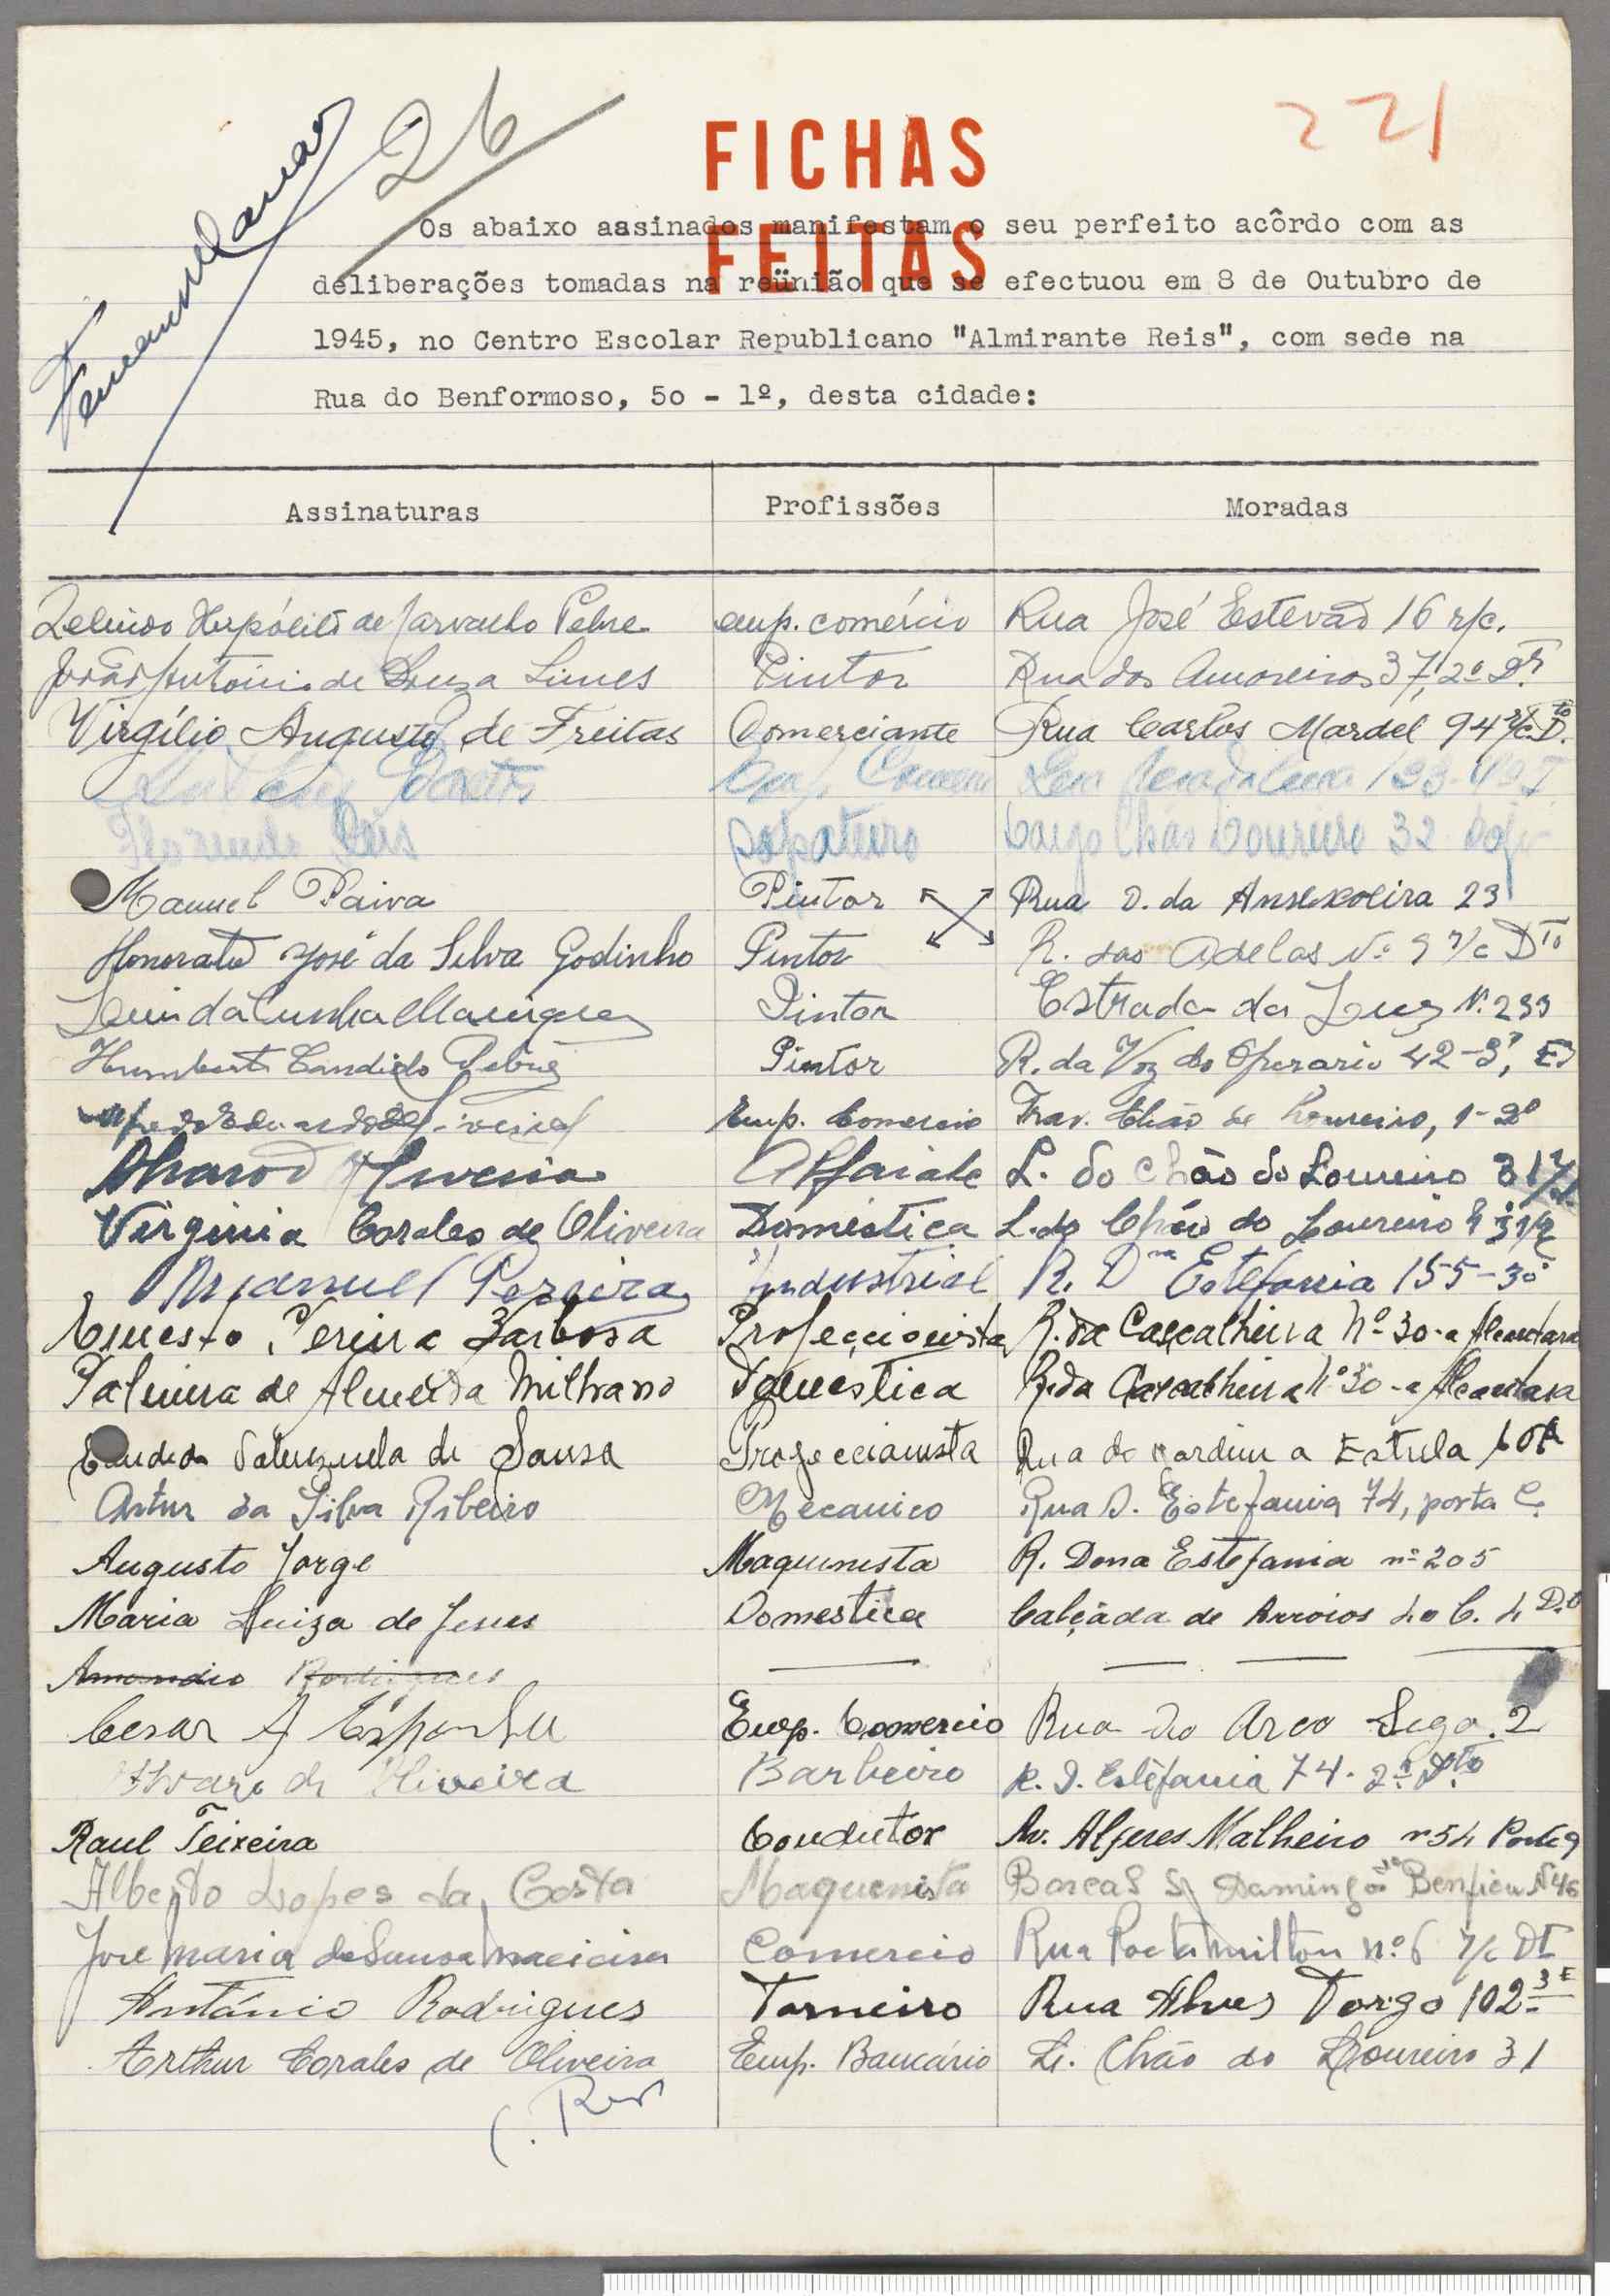 26
221
FICHAS
FEITAS
Os abaixo assinados manifestam o seu perfeito acôrdo com as
deliberações tomadas na reünião que se efectuou em 8 de Outubro de
1945, no Centro Escolar Republicano "Almirante Reis", com sede na
Rua do Benformoso, 50 - 1º, desta cidade:
Assinaturas Profissões Moradas
de Carvalho emp. comércio Rua José Estevão 16 r/c.
João António de Sousa Pintor Rua das Amoreiras 37, 2º Dt.
Virgílio Augusto de Freitas Comerciante Rua Carlos Mardel 94 r/c D.to
Emp. 123
Reis Sapateiro Largo Chão Loureiro 32
Manuel Paiva Pintor Rua D. da 23
Honorato José da Silva Godinho Pintor R. das Adelas Nº 9 r/c Dto
da Cunha Pintor Estrada da Luz Nº 233
Humberto Candido Pintor R. da Voz do Operario 42-3º, E
Emp. Comercio Trav. Chão do Loureiro, 1-2º
Alvaro Alfaiate L. do Chão do Loureiro 31
Virginia Corales de Oliveira Domestica L. do Chão do Loureiro
Manuel Pereira Industrial R. Dna Estefania 155-3º
Ernesto Pereira Barbosa Profeccionista R. da Cascalheira Nº 30-a Alcantara
Palmira de Almeida Milhano Domestica R. da Cascalheira Nº 30-a Alcantara
de Sousa Rua do Jardim a Estrela
Artur da Silva Ribeiro Mecanico Rua D. Estefania 74, porta C.
Augusto Jorge Maquinista R. Dona Estefania nº 205
Maria Luiza de Jesus Domestica Calçada de Arroios 40 C. 4 D.to
Amandio Rodrigues
Cesar A Emp. Comercio Rua do Arco 2
Alvaro de Oliveira Barbeiro R. D. Estefania 74. 2º Dto
Raul Teixeira Condutor Av. Alferes Malheiro nº 54 Porta 9
Alberto Lopes da Costa Maquenista S. Domingos de Benfica Nº 46
José Maria de Sousa Comercio Rua Poeta Milton nº 6 r/c Dt
António Rodrigues Torneiro Rua Alves Torgo 102-3º E
Arthur Corales de Oliveira Emp. Bancário L. Chão do Loureiro 31